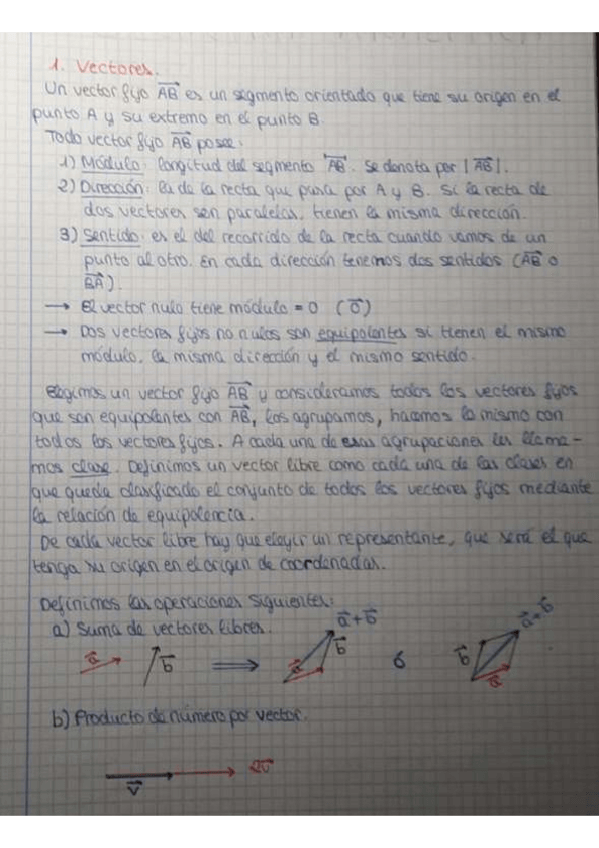 1. Vectores.
Un vector fijo AB es un segmento orientado que tiene su origen en el
punto A y su extremo en el punto B.
Todo vector fijo AB posee:
1) Módulo: longitud del segmento AB. Se denota por |AB|.
2) Dirección: la de la recta que pasa por A y B. Si la recta de
dos vectores son paralelas, tienen la misma dirección.
3) Sentido: es el del recorrido de la recta cuando vamos de un
punto al otro. En cada dirección tenemos dos sentidos (AB o
BA).
→ El vector nulo tiene módulo = 0 (0)
→ Dos vectores fijos no nulos son equipolentes si tienen el mismo
módulo, la misma dirección y el mismo sentido.
Elegimos un vector fijo AB y consideramos todos los vectores fijos
que son equipolentes con AB, los agrupamos, hacemos lo mismo con
todos los vectores fijos. A cada una de esas agrupaciones les llama-
mos clase. Definimos un vector libre como cada una de las clases en
que queda clasificado el conjunto de todos los vectores fijos mediante
la relación de equipolencia.
De cada vector libre hay que elegir un representante, que será el que
tenga su origen en el origen de coordenadas.
Definimos las operaciones siguientes:
a) Suma de vectores libres.
a b ⟹ a b a+b ó b a a+b
b) Producto de número por vector.
v 2v